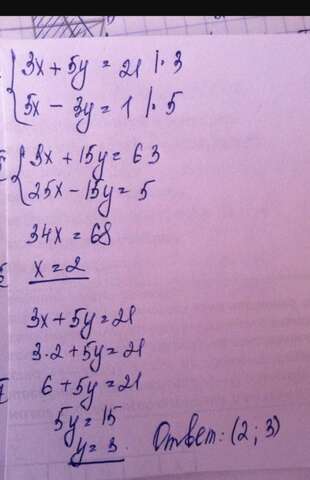 3x + 5y = 21 |· 3
5x - 3y = 1 |· 5
3x + 15y = 63
25x - 15y = 5
34x = 68
x = 2
3x + 5y = 21
3·2 + 5y = 21
6 + 5y = 21
5y = 15
y = 3. Ответ: (2; 3)